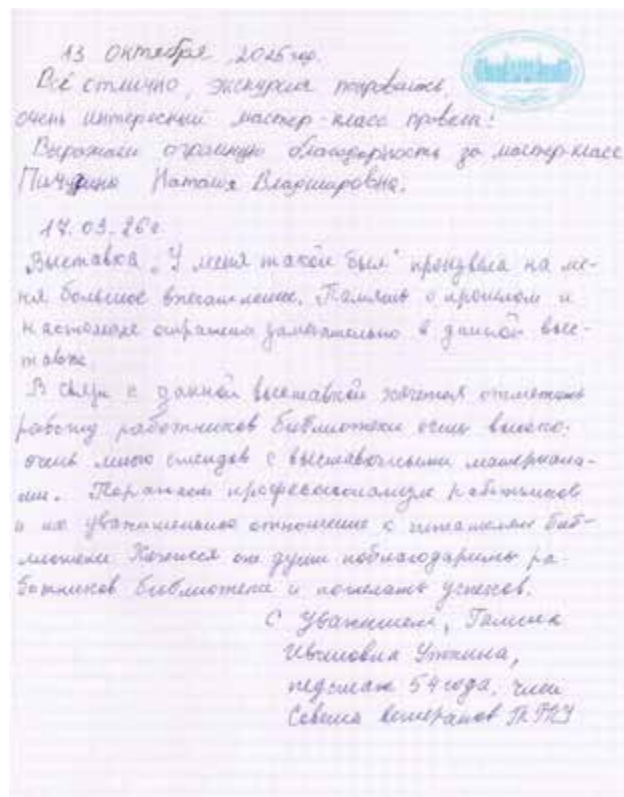 13 октября 2025 год.
Всё отлично, экскурсия понравилась,
очень интересный мастер-класс провела!
Выражаем огромную благодарность за мастер-класс
Наталия Владимировна.
17.03.26г.
Выставка "У меня такой был" произвела на ме-
ня большое впечатление. Память о прошлом и
настоящем отражена замечательно в данной выс-
тавке.
В связи с данной выставкой хочется отметить
работу работников библиотеки очень высоко:
очень много стендов с выставочными материала-
ми. Поражает профессионализм работников
и их уважительное отношение к читателям биб-
лиотеки. Хочется от души поблагодарить ра-
ботников библиотеки и пожелать успехов.
С уважением, Галина
Ивановна Уткина,
педстаж 54 года, член
Совета ветеранов